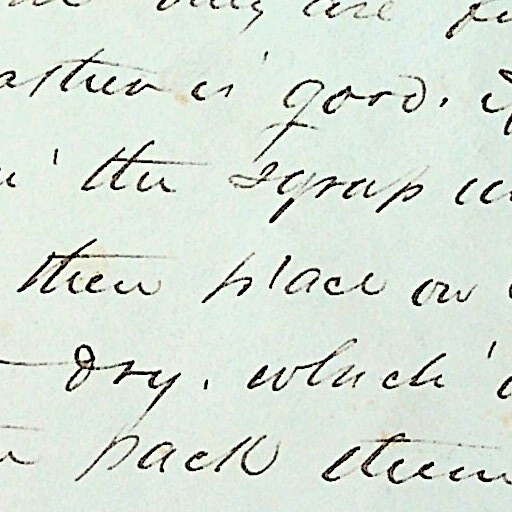 they are
is good.
the syrup
then place on
dry. which
pack them